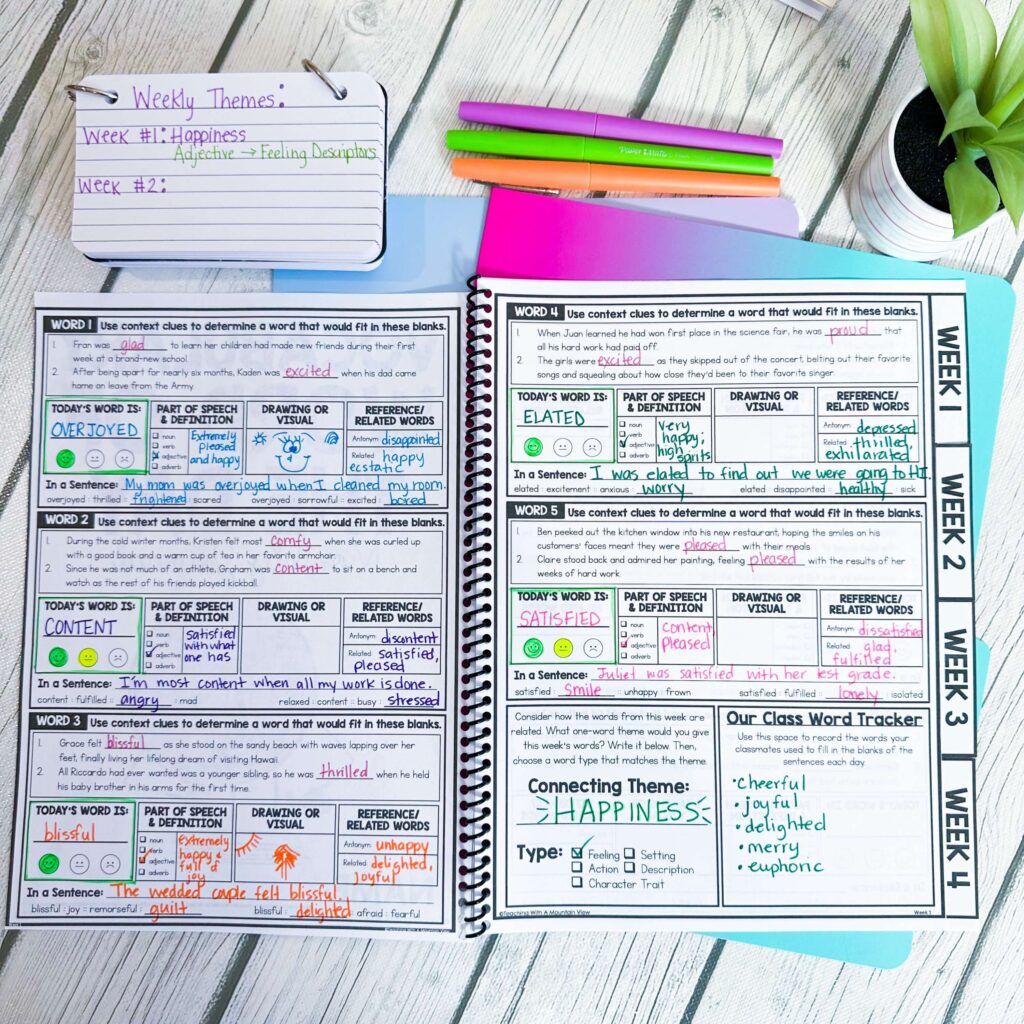 Weekly Themes:
Week #1: Happiness
Adjective → Feeling Descriptors
Week #2:
WORD 1 Use context clues to determine a word that would fit in these blanks.
1. Fran was glad to learn her children had made new friends during their first
week at a brand-new school.
2. After being apart for nearly six months, Kaden was excited when his dad came
home on leave from the Army.
TODAY'S WORD IS:
OVERJOYED
PART OF SPEECH
& DEFINITION
noun
verb
adjective
adverb
Extremely
pleased
and happy
DRAWING OR
VISUAL
REFERENCE/
RELATED WORDS
Antonym disappointed
Related happy
ecstatic
In a Sentence: My mom was overjoyed when I cleaned my room.
overjoyed : thrilled :: frightened : scared overjoyed : sorrowful :: excited : bored
WORD 2 Use context clues to determine a word that would fit in these blanks.
1. During the cold winter months, Kristen felt most comfy when she was curled up
with a good book and a warm cup of tea in her favorite armchair.
2. Since he was not much of an athlete, Graham was content to sit on a bench and
watch as the rest of his friends played kickball.
TODAY'S WORD IS:
CONTENT
PART OF SPEECH
& DEFINITION
noun
verb
adjective
adverb
satisfied
with what
one has
DRAWING OR
VISUAL
REFERENCE/
RELATED WORDS
Antonym discontent
Related satisfied,
pleased
In a Sentence: I'm most content when all my work is done.
content : fulfilled :: angry : mad relaxed : content :: busy : stressed
WORD 3 Use context clues to determine a word that would fit in these blanks.
1. Grace felt blissful as she stood on the sandy beach with waves lapping over her
feet, finally living her lifelong dream of visiting Hawaii.
2. All Riccardo had ever wanted was a younger sibling, so he was thrilled when he held
his baby brother in his arms for the first time.
TODAY'S WORD IS:
blissful
PART OF SPEECH
& DEFINITION
noun
verb
adjective
adverb
extremely
happy &
full of
joy
DRAWING OR
VISUAL
REFERENCE/
RELATED WORDS
Antonym unhappy
Related delighted,
joyful
In a Sentence: The wedded couple felt blissful.
blissful : joy :: remorseful : guilt blissful : delighted :: afraid : fearful
WORD 4 Use context clues to determine a word that would fit in these blanks.
1. When Juan learned he had won first place in the science fair, he was proud that
all his hard work had paid off.
2. The girls were excited as they skipped out of the concert, belting out their favorite
songs and squealing about how close they'd been to their favorite singer.
TODAY'S WORD IS:
ELATED
PART OF SPEECH
& DEFINITION
noun
verb
adjective
adverb
very
happy;
high
spirits
DRAWING OR
VISUAL
REFERENCE/
RELATED WORDS
Antonym depressed
Related thrilled,
exhilarated
In a Sentence: I was elated to find out we were going to HI.
elated : excitement :: anxious : worry elated : disappointed :: healthy : sick
WORD 5 Use context clues to determine a word that would fit in these blanks.
1. Ben peeked out the kitchen window into his new restaurant, hoping the smiles on his
customers' faces meant they were pleased with their meals.
2. Claire stood back and admired her painting, feeling pleased with the results of her
weeks of hard work.
TODAY'S WORD IS:
SATISFIED
PART OF SPEECH
& DEFINITION
noun
verb
adjective
adverb
content,
pleased
DRAWING OR
VISUAL
REFERENCE/
RELATED WORDS
Antonym dissatisfied
Related glad,
fulfilled
In a Sentence: Juliet was satisfied with her test grade.
satisfied : smile :: unhappy : frown satisfied : fulfilled :: lonely : isolated
Consider how the words from this week are
related. What one-word theme would you give
this week's words? Write it below. Then,
choose a word type that matches the theme.
Connecting Theme:
HAPPINESS
Type: Feeling Setting
Action Description
Character Trait
Our Class Word Tracker
Use this space to record the words your
classmates used to fill in the blanks of the
sentences each day.
• cheerful
• joyful
• delighted
• merry
• euphoric
©Teaching With A Mountain View
Week 1
WEEK 1
WEEK 2
WEEK 3
WEEK 4